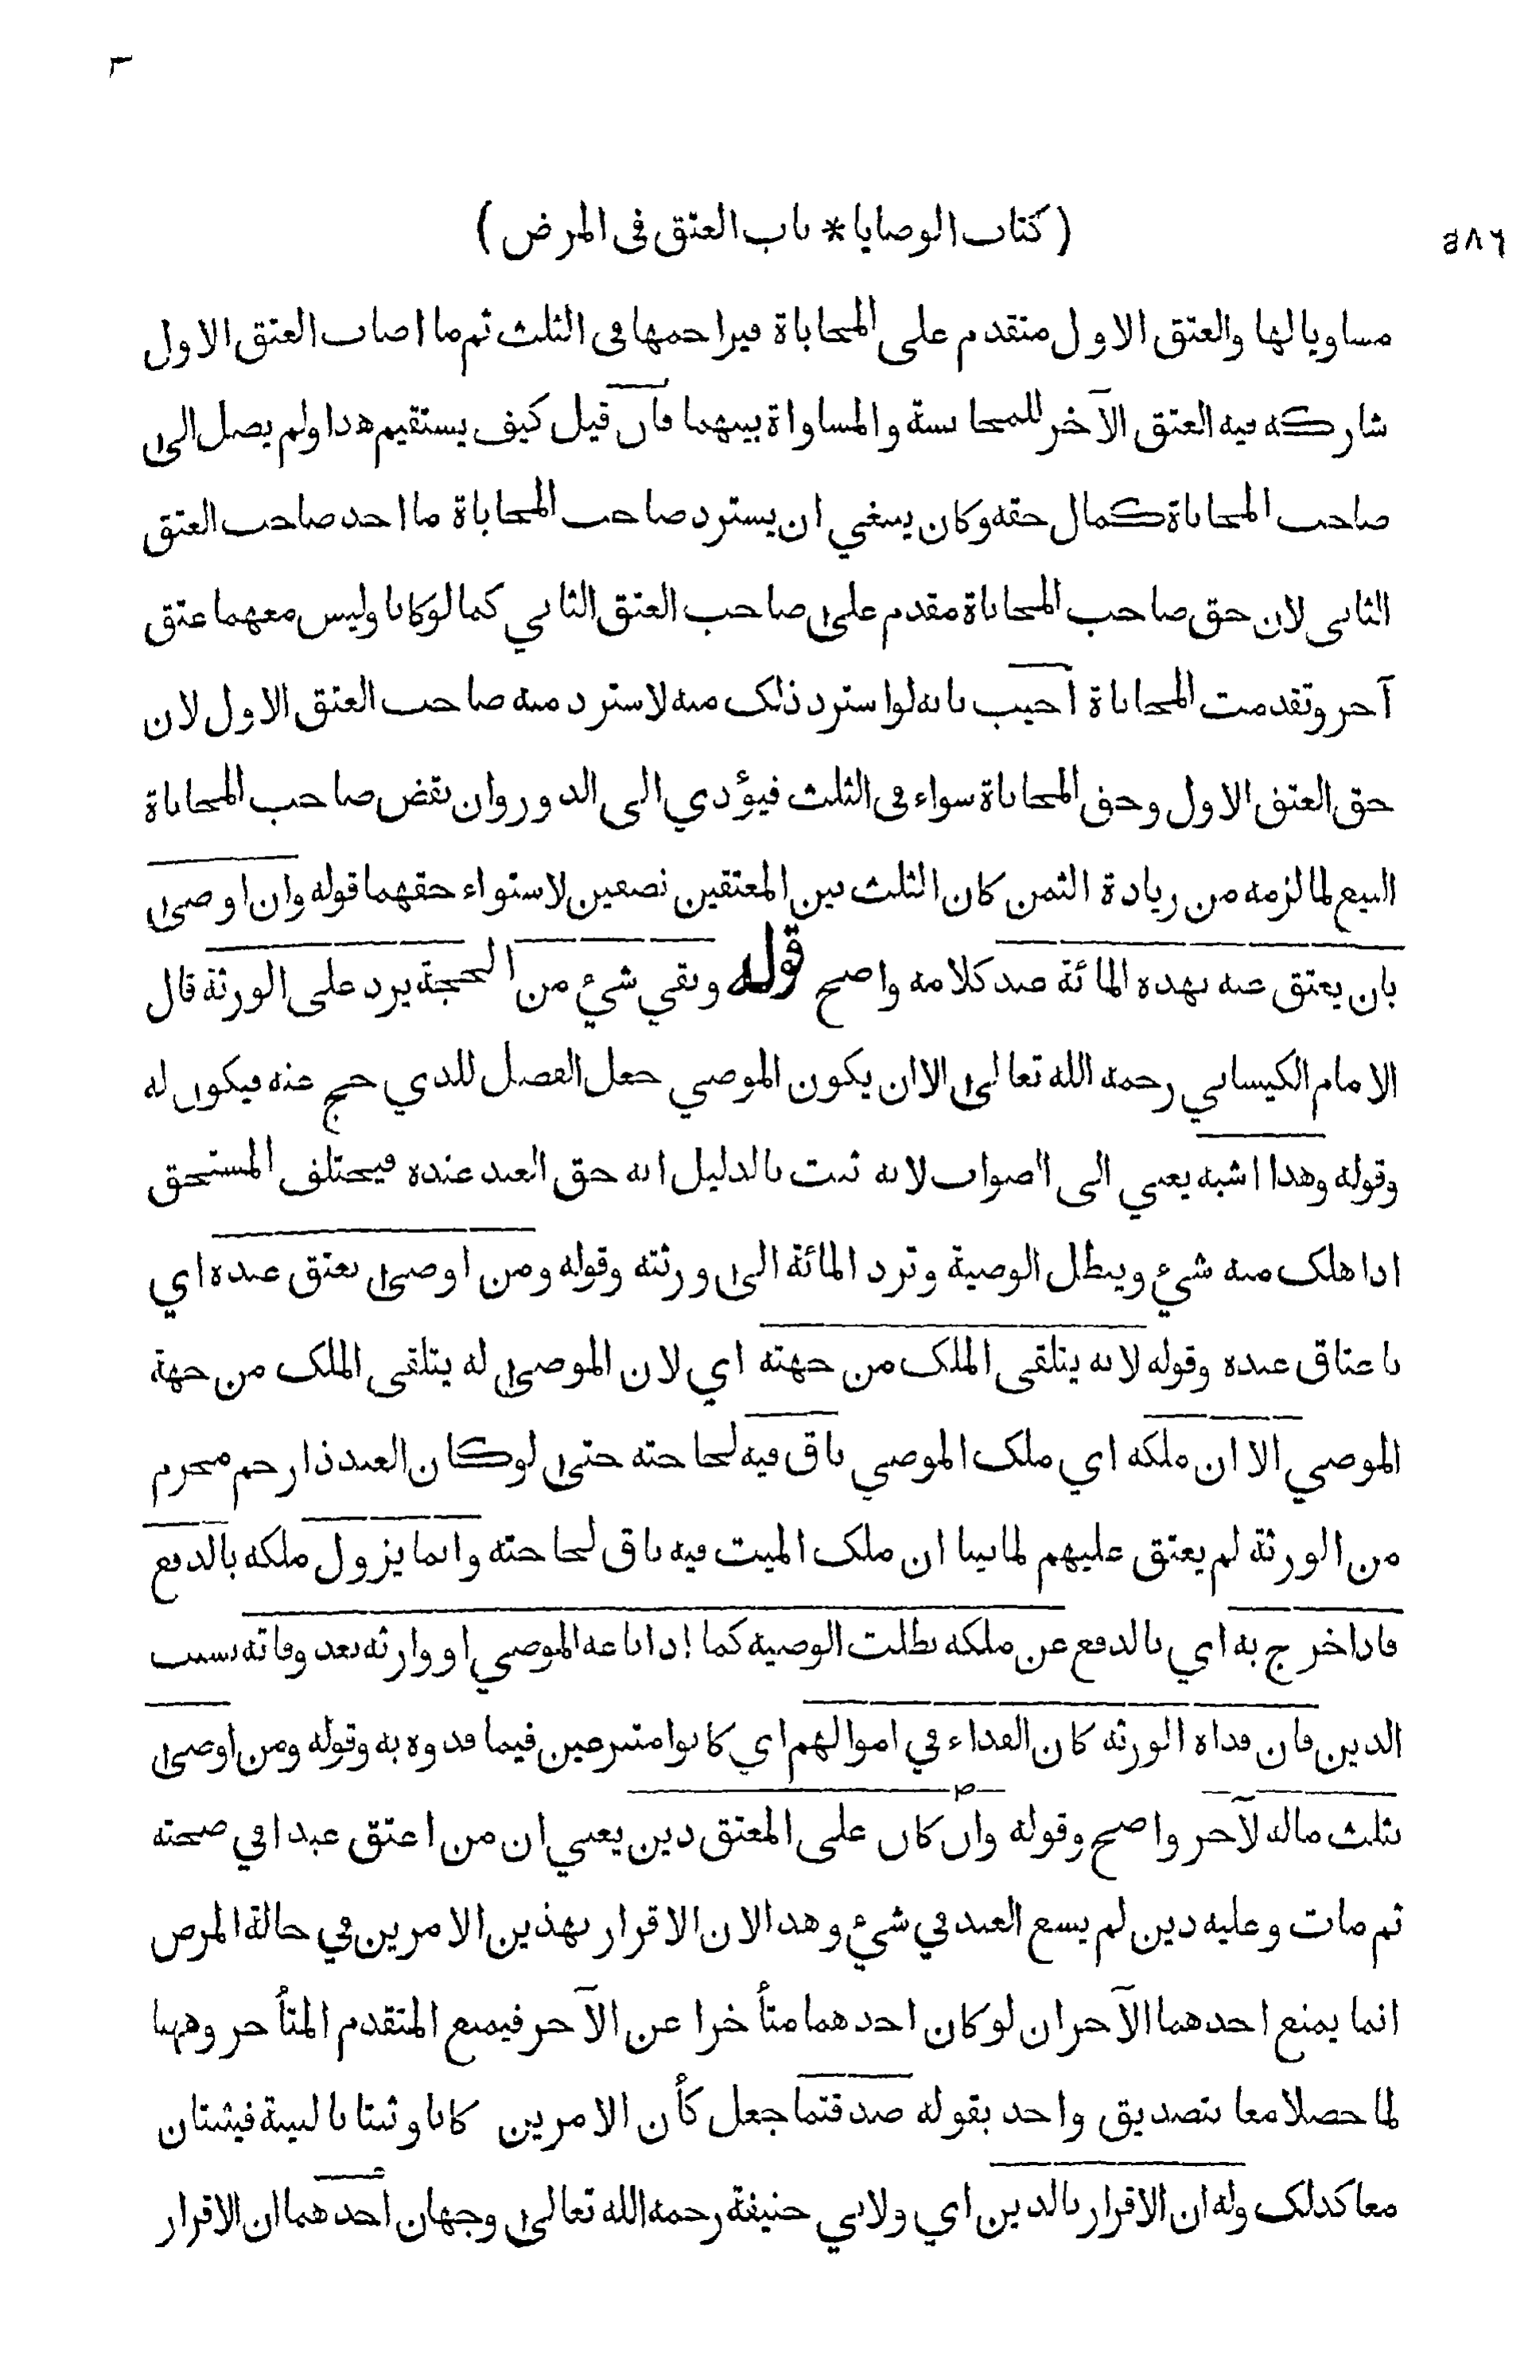 ( كتاب الوصايا * باب العتق في المرض )
٤٨٦
مساويا لها والعتق الاول متقدم على المحاباة فيزاحمها في الثلث ثم ما اصاب العتق الاول
شاركه فيه العتق الآخر للمجانسة والمساواة بينهما فان قيل كيف يستقيم هذا ولم يصل الى
صاحب المحاباة كمال حقه وكان ينبغي ان يسترد صاحب المحاباة ما اخذ صاحب العتق
الثاني لان حق صاحب المحاباة مقدم على صاحب العتق الثاني كما لو كانا وليس معهما عتق
آخر وتقدمت المحاباة اجيب بانه لو استرد ذلك منه لاسترد منه صاحب العتق الاول لان
حق العتق الاول وحق المحاباة سواء في الثلث فيؤدي الى الدور وان نقض صاحب المحاباة
البيع لما لزمه من زيادة الثمن كان الثلث بين المعتقين نصفين لاستواء حقهما قوله وان اوصى
بان يعتق عنه بهذه المائة عبد كلامه واضح قوله وبقي شيء من الحجة يرد على الورثة قال
الامام الكيساني رحمه الله تعالى الا ان يكون الموصي جعل الفضل للذي حج عنه فيكون له
وقوله وهذا اشبه يعني الى الصواب لانه ثبت بالدليل انه حق العبد عنده فيختلف المستحق
اذا هلك منه شيء ويبطل الوصية وترد المائة الى ورثته وقوله ومن اوصى بعتق عبده اي
باعتاق عبده وقوله لانه يتلقى الملك من جهته اي لان الموصى له يتلقى الملك من جهة
الموصي الا ان ملكه اي ملك الموصي باق فيه لحاجته حتى لو كان العبد ذا رحم محرم
من الورثة لم يعتق عليهم لما بينا ان ملك الميت فيه باق لحاجته وانما يزول ملكه بالدفع
فاذا خرج به اي بالدفع عن ملكه بطلت الوصية كما اذا باعه الموصي او وارثه بعد وفاته بسبب
الدين فان فداه الورثه كان الفداء في اموالهم اي كانوا متبرعين فيما فدوه به وقوله ومن اوصى
بثلث ماله لآخر واضح وقوله وان كان على المعتق دين يعني ان من اعتق عبدا في صحته
ثم مات وعليه دين لم يسع العبد في شيء وهذا لان الاقرار بهذين الامرين في حالة المرض
انما يمنع احدهما الآخر ان لو كان احدهما متأخرا عن الآخر فيمنع المتقدم المتأخر وههنا
لما حصلا معا بتصديق واحد بقوله صدقتما جعل كأن الامرين كانا وثبتا بالبينة فيثبتان
معا كذلك وله ان الاقرار بالدين اي ولابي حنيفة رحمه الله تعالى وجهان احدهما ان الاقرار